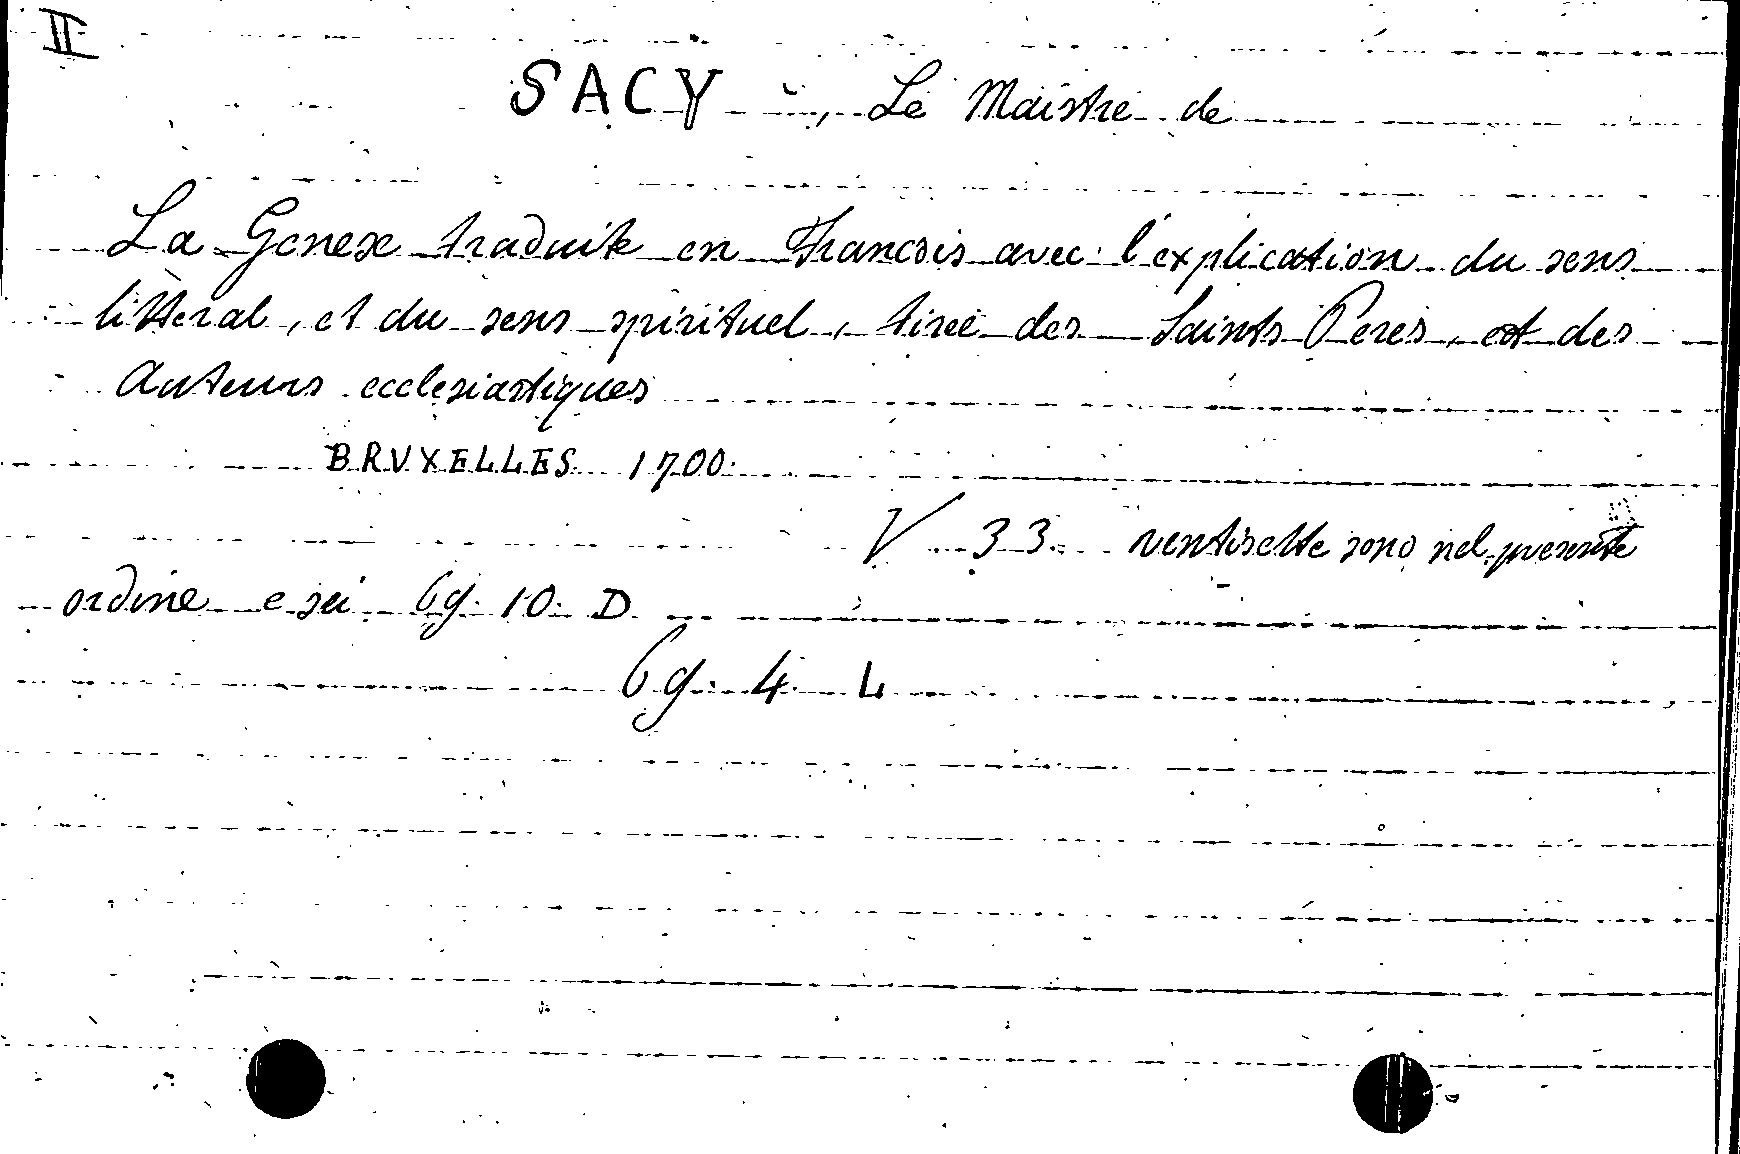 II
SACY, Le Maistre de
La Genese traduite en Francois avec l'explication du sens
litteral, et du sens spirituel, tirée des Saints Peres, et des
Auteurs ecclesiastiques
BRVXELLES 1700
V 33 ventisette sono nel presente
ordine e sei 6g. 10. D
6g. 4. L